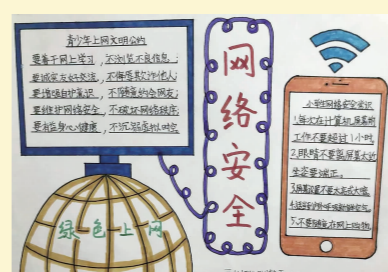 青少年上网文明公约
要善于网上学习,不浏览不良信息;
要诚实友好交流,不侮辱欺诈他人;
要增强自护意识,不随意约会网友;
要维护网络安全,不破坏网络秩序;
要有益身心健康,不沉溺虚拟时空.
网络安全
绿色上网
小学生网络安全常识
1.每次在计算机屏幕前
工作不要超过1小时.
2.眼睛不要离屏幕太近
坐姿要端正.
3.屏幕设置不要太亮或太暗.